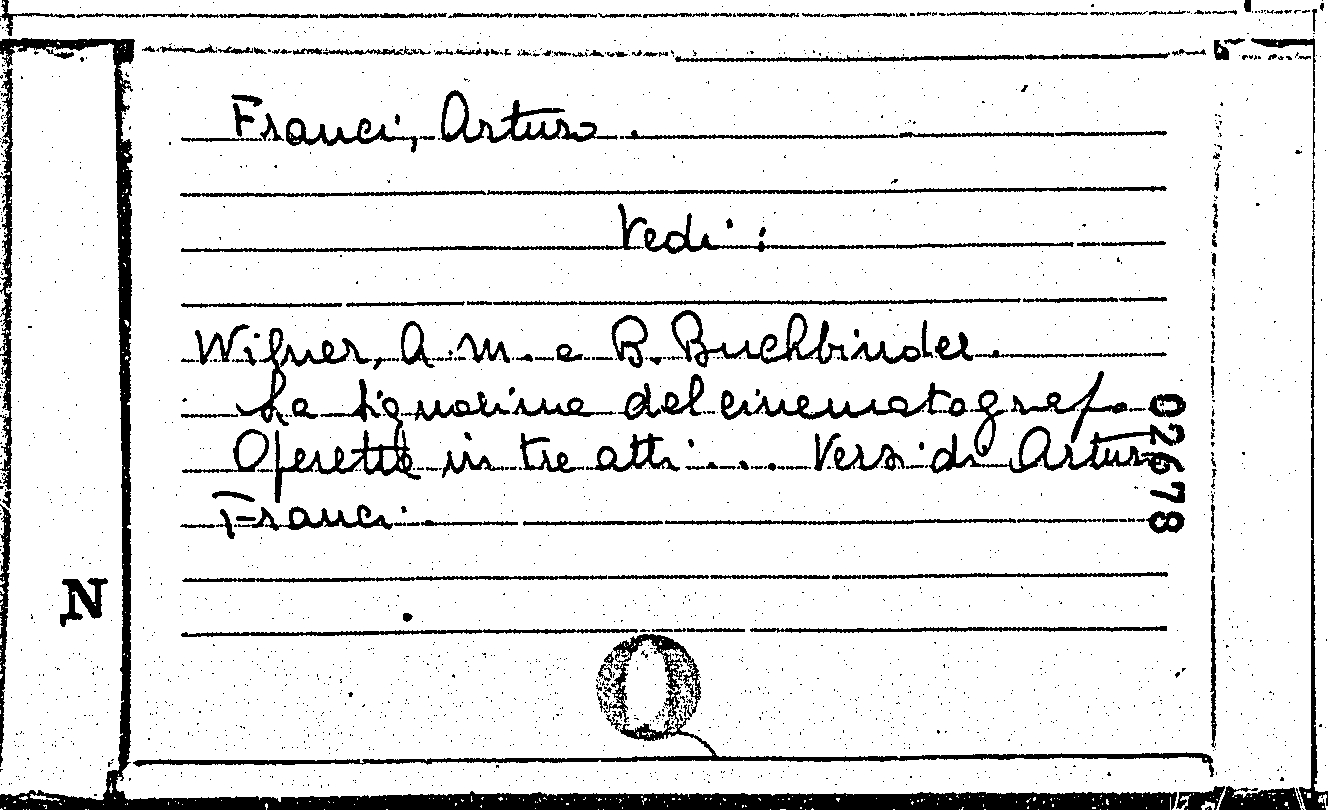 Franci, Arturo.
Vedi:
Wilner, A. M. e B. Buchbinder.
La signorina del cinematografo.
Operette in tre atti... Versi di Arturo
Franci.
02678
N